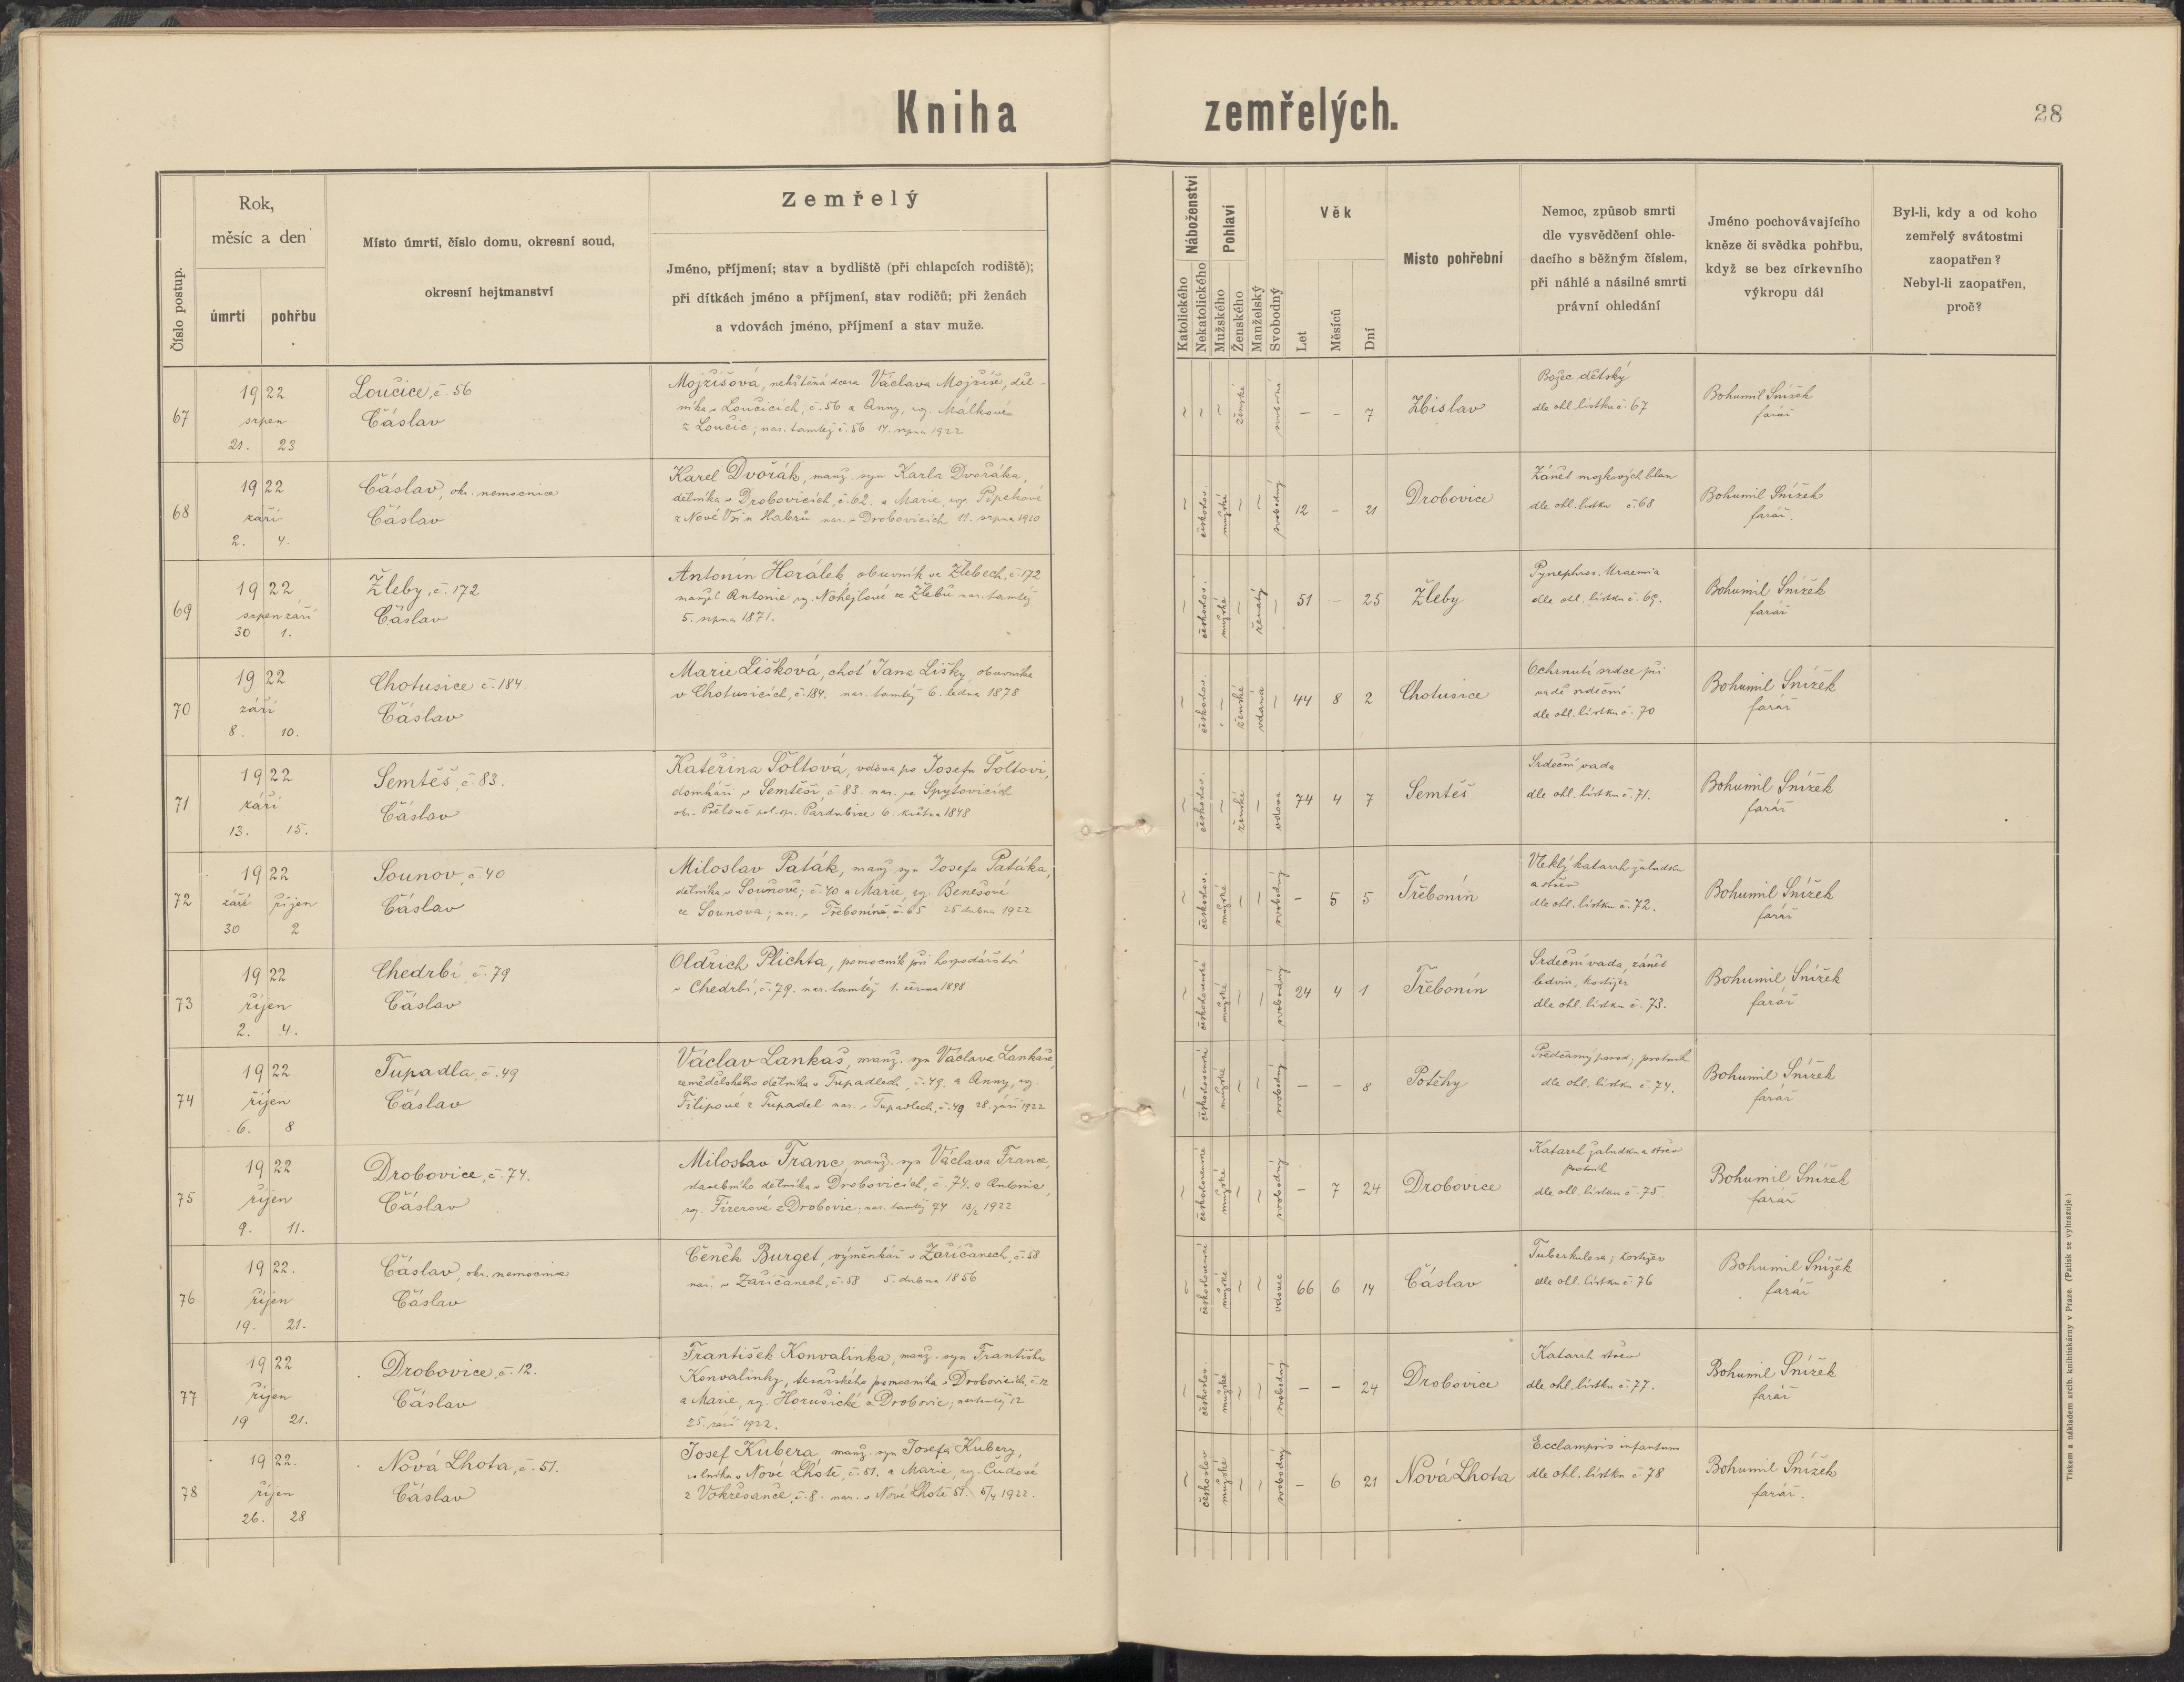 Kniha zemřelých.
28
Číslo postup.
Rok,
měsíc a den
úmrtí
pohřbu
Místo úmrtí, číslo domu, okresní soud,
okresní hejtmanství
Zemřelý
Jméno, příjmení; stav a bydliště (při chlapcích rodiště);
při dítkách jméno a příjmení, stav rodičů; při ženách
a vdovách jméno, příjmení a stav muže.
Náboženství
Katolického
Nekatolického
Pohlaví
Mužského
Ženského
Manželský
Svobodný
Věk
Let
Měsíců
Dní
Místo pohřební
Nemoc, způsob smrti
dle vysvědčení ohle-
dacího s běžným číslem,
při náhlé a násilné smrti
právní ohledání
Jméno pochovávajícího
kněze či svědka pohřbu,
když se bez církevního
výkropu dál
Byl-li, kdy a od koho
zemřelý svátostmi
zaopatřen?
Nebyl-li zaopatřen,
proč?
67
1922
srpen
21. 23
Loučice, č. 56
Čáslav
Mojžíšová, nekřtěná dcera Václava Mojžíše, děl-
níka v Loučicích, č. 56 a Anny, roz. Málkové
z Loučic; nar. tamtéž č. 56 14. srpna 1922
~ ~ ~ ženské svobodná
– – 7
Zbislav
Božec dětský
dle ohl. lístku č. 67
Bohumil Snížek
farář
68
1922
září
2. 4.
Čáslav, okr. nemocnice
Čáslav
Karel Dvořák, manž. syn Karla Dvořáka,
dělníka v Drobovicích, č. 62. a Marie, roz.
z Nové Vsi u Habrů nar. v Drobovicích 11. srpna 1910
~ českoslov. mužské ~ ~ svobodný
12 – 21
Drobovice
Zánět mozkových blan
dle ohl. lístku č. 68
Bohumil Snížek
farář.
69
1922
srpen září
30 1.
Žleby, č. 172
Čáslav
Antonín Horálek, obuvník ve Žlebech, č. 172
manžel Antonie roz. Nohejlové ze Žlebů nar. tamtéž
5. srpna 1871.
~ českoslov. mužské ~ ženatý ~
51 – 25
Žleby
Pynephros. Uraemia
dle ohl. lístku č. 69.
Bohumil Snížek
farář
70
1922
září
8. 10.
Chotusice č. 184.
Čáslav
Marie Lišková, choť Jana Lišky, obuvníka
v Chotusicích, č. 184. nar. tamtéž 6. ledna 1878
~ českoslov. ~ ženské vdaná ~
44 8 2
Chotusice
Ochrnutí srdce při
vadě srdeční
dle ohl. lístku č. 70
Bohumil Snížek
farář
71
1922
září
13. 15.
Semtěš, č. 83.
Čáslav
Kateřina Šoltová, vdova po Josefu Šoltovi,
domkáři v Semtěši, č. 83. nar. ve Spytovicích
okr. Přelouč pol. spr. Pardubice 6. května 1848
~ českoslov. ~ ženské ~ vdova
74 4 7
Semtěš
Srdeční vada
dle ohl. lístku č. 71.
Bohumil Snížek
farář
72
1922
září říjen
30 2
Souňov, č. 40
Čáslav
Miloslav Paták, manž. syn Josefa Patáka,
dělníka v Souňově; č. 40 a Marie, roz. Benešové
ze Souňova; nar. v Třeboníně, č. 65 25 dubna 1922
~ českoslov. mužské ~ ~ svobodný
– 5 5
Třebonín
Vleklý katarrh žaludku
a střev
dle ohl. lístku č. 72.
Bohumil Snížek
farář
73
1922
říjen
2. 4.
Chedrbí, č. 79
Čáslav
Oldřich Plichta, pomocník při hospodářství
v Chedrbí, č. 79. nar. tamtéž 1. června 1898
~ československé mužské ~ ~ svobodný
24 4 1
Třebonín
Srdeční vada, zánět
ledvin, kostižer
dle ohl. lístku č. 73.
Bohumil Snížek
farář
74
1922
říjen
6. 8
Tupadla, č. 49
Čáslav
Václav Lankaš, manž. syn Václava Lankaše,
zemědělského dělníka v Tupadlech, č. 49. a Anny, roz.
Filipové z Tupadel nar. v Tupadlech, č. 49 28. září 1922
~ československé mužské ~ ~ svobodný
– – 8
Potěhy
Předčasný porod; psotník
dle ohl. lístku č. 74.
Bohumil Snížek
farář
75
1922
říjen
9. 11.
Drobovice, č. 74.
Čáslav
Miloslav Franc, manž. syn Václava France,
stavebního dělníka v Drobovicích, č. 74. a Antonie,
roz. Fizerové z Drobovic; nar. tamtéž 74 13/2 1922
~ československé mužské ~ ~ svobodný
– 7 24
Drobovice
Katarrh žaludku a střev
psotník
dle ohl. lístku č. 75.
Bohumil Snížek
farář
76
1922.
říjen
19. 21.
Čáslav, okr. nemocnice
Čáslav
Čeněk Burget, výměnkář v Zaříčanech, č. 58
nar. v Zaříčanech, č. 58 5. dubna 1856
~ československé mužské ~ ~ vdovec
66 6 14
Čáslav
Tuberkulosa; kostižer
dle ohl. lístku č. 76
Bohumil Snížek
farář
77
1922
říjen
19 21.
Drobovice, č. 12.
Čáslav
František Konvalinka, manž. syn Františka
Konvalinky, tesařského pomocníka v Drobovicích, č. 12
a Marie, roz. Horušické z Drobovic; nar. tamtéž 12
25. září 1922.
~ českoslov. mužské ~ ~ svobodný
– – 24
Drobovice
Katarrh střev
dle ohl. lístku č. 77.
Bohumil Snížek
farář
78
1922.
říjen
26. 28
Nová Lhota, č. 51.
Čáslav
Josef Kubera, manž. syn Josefa Kubery,
rolníka v Nové Lhotě, č. 51. a Marie, roz. Čudové
z Vokřesance, č. 8. nar. v Nové Lhotě 51. 5/4 1922.
~ českoslov mužské ~ ~ svobodný
– 6 21
Nová Lhota
Ecclampsis infantum
dle ohl. lístku č. 78
Bohumil Snížek
farář.
Tiskem a nákladem arcib. knihtiskárny v Praze. (Patisk se vyhrazuje.)